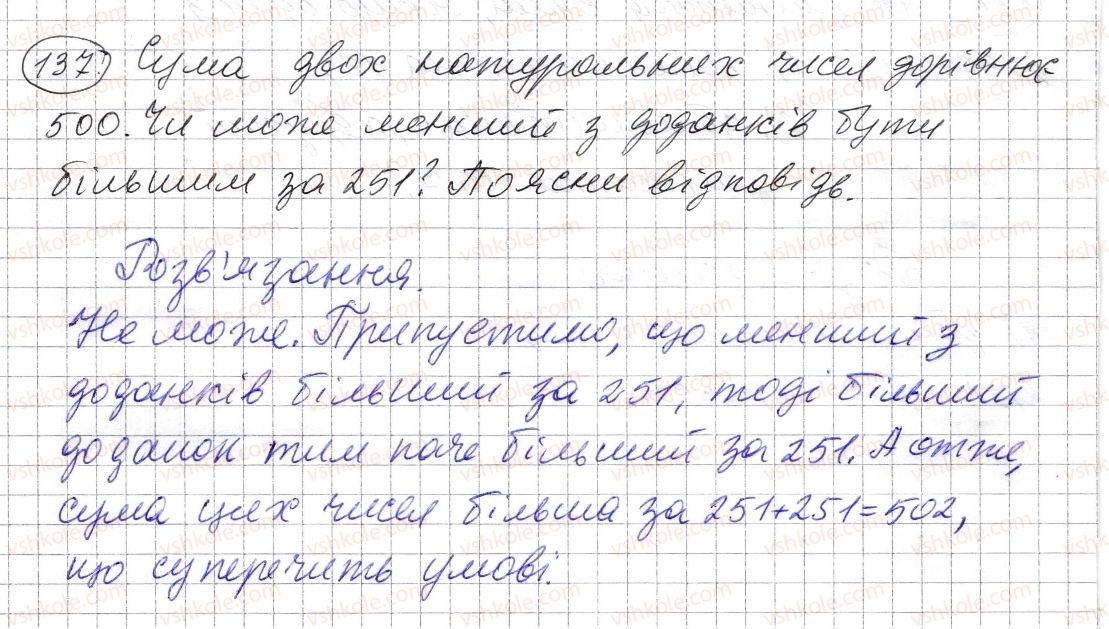 137 Сума двох натуральних чисел дорівнює
500. Чи може менший з доданків бути
більшим за 251? Поясни відповідь.
Розв'язання.
Не може. Припустимо, що менший з
доданків більший за 251, тоді більший
доданок тим паче більший за 251. А отже,
сума цих чисел більша за 251+251=502,
що суперечить умові.